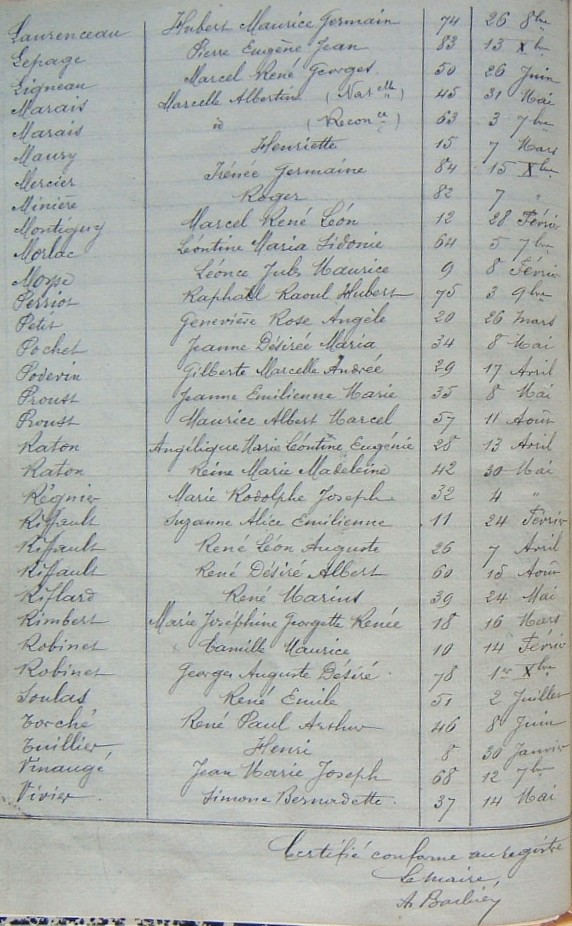 Laurenceau Hubert Maurice Germain 74 26 8bre
Lepage Pierre Eugène Jean 83 13 Xbre
Ligneau Marcel René Georges 50 26 Juin
Marais Marcelle Albertine (Nat elle) 45 31 Mai
Marais id (Recon ce) 63 3 7bre
Maury Henriette 15 7 Mars
Mercier Irénée Germaine 84 15 Xbre
Minière Roger 82 7 "
Montigny Marcel René Léon 12 28 Février
Morlac Léontine Maria Sidonie 64 5 7bre
Moyse Léonce Jules Maurice 9 8 Février
Perriot Raphaël Raoul Hubert 75 3 9bre
Petit Geneviève Rose Angèle 20 26 mars
Pochet Jeanne Désirée Maria 34 8 Mai
Podevin Gilberte Marcelle Andrée 29 17 Avril
Proust Jeanne Emilienne Marie 35 8 Mai
Proust Maurice Albert Marcel 57 11 Août
Raton Angélique Marie Léontine Eugénie 28 13 Avril
Raton Reine Marie Madeleine 42 30 Mai
Régnier Marie Rodolphe Joseph 32 4 "
Riffault Suzanne Alice Emilienne 11 24 Février
Riffault René Léon Auguste 26 7 Avril
Riffault René Désiré Albert 60 15 Août
Riflard René Marius 39 24 Mai
Rimbert Marie Joséphine Georgette Renée 18 16 Mars
Robinet Camille Maurice 10 14 Février
Robinet Georges Auguste Désiré 78 1er Xbre
Soulas René Emile 51 2 Juillet
Torché René Paul Arthur 46 8 Juin
Tuillier Henri 8 30 Janvier
Vinaugé Jean Marie Joseph 68 12 7bre
Vivier Simone Bernadette 37 14 Mai
Certifié conforme au registre
Le maire,